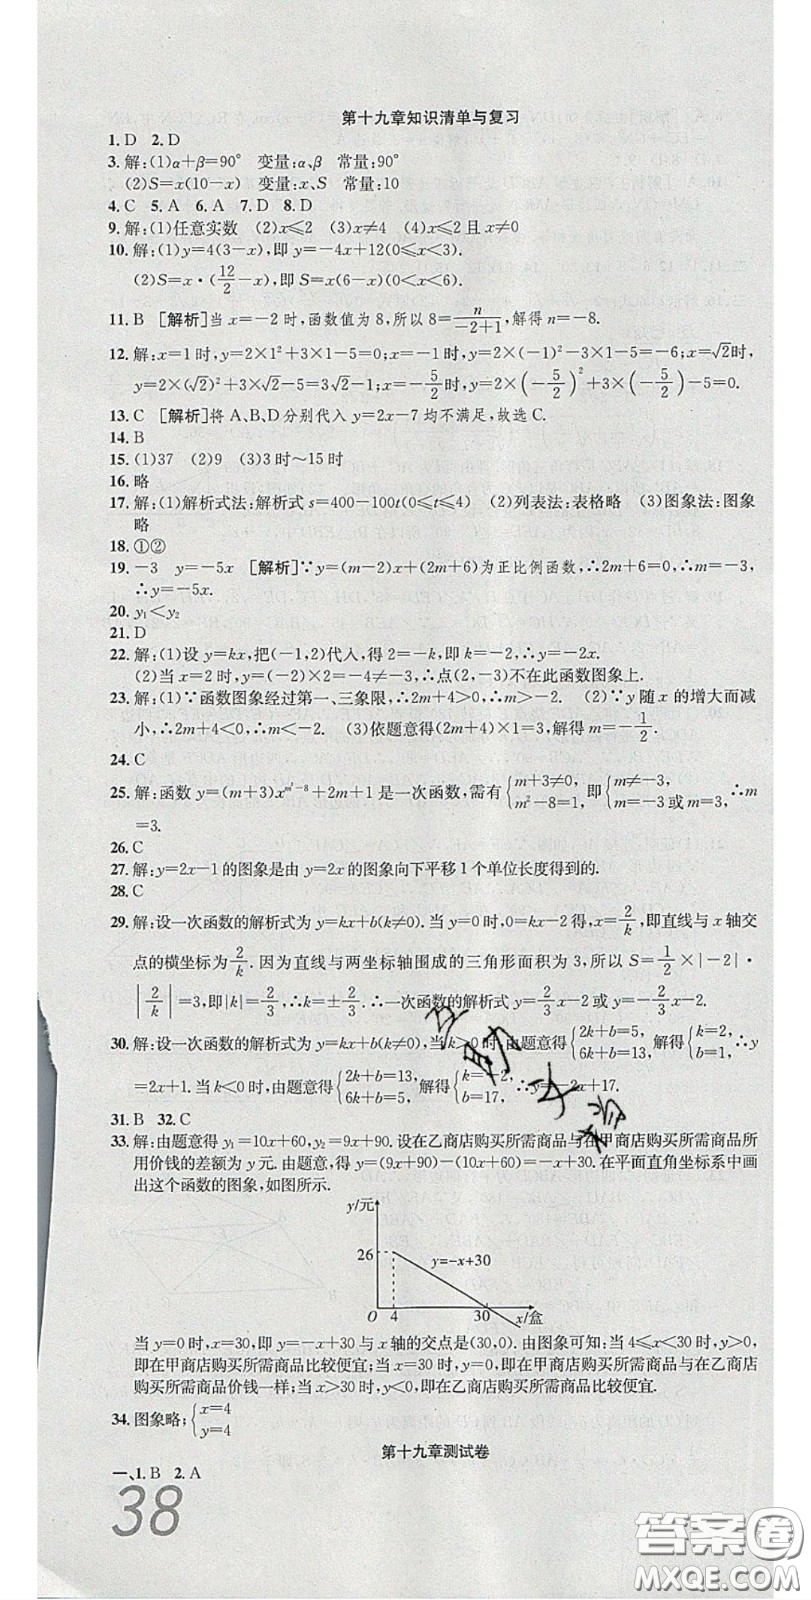 第十九章知识清单与复习
1. D  2. D
3. 解:(1)α+β=90°  变量:α、β  常量:90°
(2)S=x(10-x)  变量:x、S  常量:10
4. C  5. A  6. A  7. D  8. D
9. 解:(1)任意实数  (2)x≤2  (3)x≠4  (4)x≤2且x≠0
10. 解:(1)y=4(3-x),即y=-4x+12(0≤x<3).
(2)S=x·(12/2-x),即S=x(6-x)(0<x<6).
11. B  [解析]当x=-2时,函数值为8,所以8=n/(-2+1),解得n=-8.
12. 解:x=1时,y=2×1²+3×1-5=0;x=-1时,y=2×(-1)²-3×1-5=-6;x=√2时,
y=2×(√2)²+3×√2-5=3√2-1;x=-5/2时,y=2×(-5/2)²+3×(-5/2)-5=0.
13. C  [解析]将A、B、D分别代入y=2x-7均不满足,故选C.
14. B
15. (1)37  (2)9  (3)3时~15时
16. 略
17. 解:(1)解析式法:解析式s=400-100t(0≤t≤4)  (2)列表法:表格略  (3)图象法:图象
略
18. ①②
19. -3  y=-5x  [解析]∵y=(m-2)x+(2m+6)为正比例函数,∴2m+6=0,∴m=-3,
∴y=-5x.
20. y₁<y₂
21. D
22. 解:(1)设y=kx,把(-1,2)代入,得2=-k,即k=-2,∴y=-2x.
(2)当x=2时,y=(-2)×2=-4≠-3,∴点(2,-3)不在此函数图象上.
23. 解:(1)∵函数图象经过第一、三象限,∴2m+4>0,∴m>-2.  (2)∵y随x的增大而减
小,∴2m+4<0,∴m<-2.  (3)依题意得(2m+4)×1=3,解得m=-1/2.
24. C
25. 解:函数y=(m+3)x^(m²-8)+2m+1是一次函数,需有{m+3≠0, m²-8=1,即{m≠-3, m=-3或m=3,∴m
=3.
26. C
27. 解:y=2x-1的图象是由y=2x的图象向下平移1个单位长度得到的.
28. C
29. 解:设一次函数的解析式为y=kx+b(k≠0).当y=0时,0=kx-2得,x=2/k,即直线与x轴交
点的横坐标为2/k.因为直线与两坐标轴围成的三角形面积为3,所以S=1/2×|-2|·
|2/k|=3,即|k|=2/3,∴k=±2/3.∴一次函数的解析式y=2/3x-2或y=-2/3x-2.
30. 解:设一次函数的解析式为y=kx+b(k≠0),当k>0时,由题意得{2k+b=5, 6k+b=13,解得{k=2, b=1,∴y
=2x+1.当k<0时,由题意得{2k+b=13, 6k+b=5,解得{k=-2, b=17,∴y=-2x+17.
31. B  32. C
33. 解:由题意得y₁=10x+60,y₂=9x+90.设在乙商店购买所需商品与在甲商店购买所需商品所
用价钱的差额为y元.由题意,得y=(9x+90)-(10x+60)=-x+30.在平面直角坐标系中画
出这个函数的图象,如图所示.
y/元
26
y=-x+30
O 4 30 x/盒
当y=0时,x=30,即y=-x+30与x轴的交点是(30,0).由图象可知;当4≤x<30时,y>0,
即在甲商店购买所需商品比较便宜;当x=30时,y=0,即在甲商店购买所需商品与在乙商
店购买所需商品价钱一样;当x>30时,y<0,即在乙商店购买所需商品比较便宜.
34. 图象略;{x=4 y=4
第十九章测试卷
一、1. B  2. A
38
答案圈
MXQE.COM